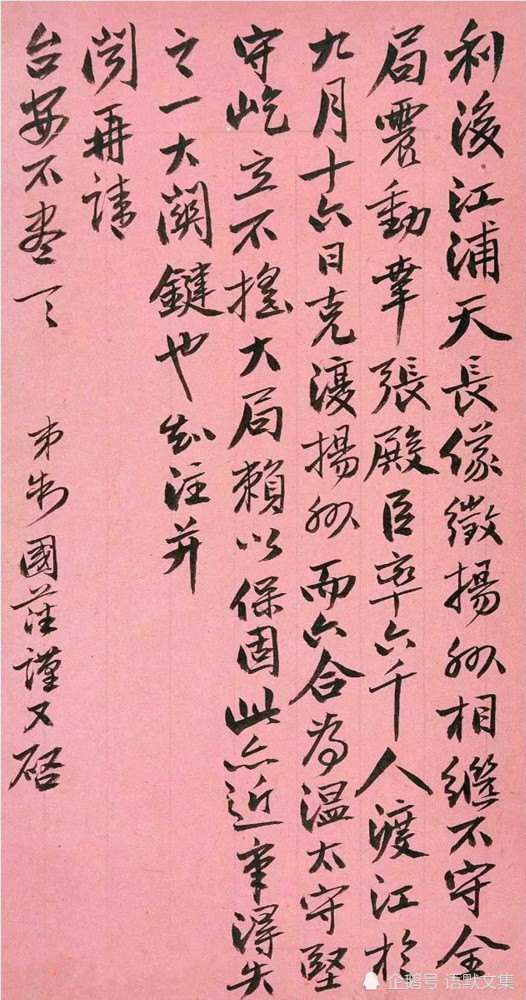 利後江浦天長儀徵揚州相繼不守全
局震動幸張殿臣率六千人渡江於
九月十六日克復揚州而六合為溫太守堅
守屹立不搖大局賴以保固此亦近事得失
之一大關鍵也知注并
聞再請
台安不盡一一
弟制國藩謹又啟
企鹅号 语默文集